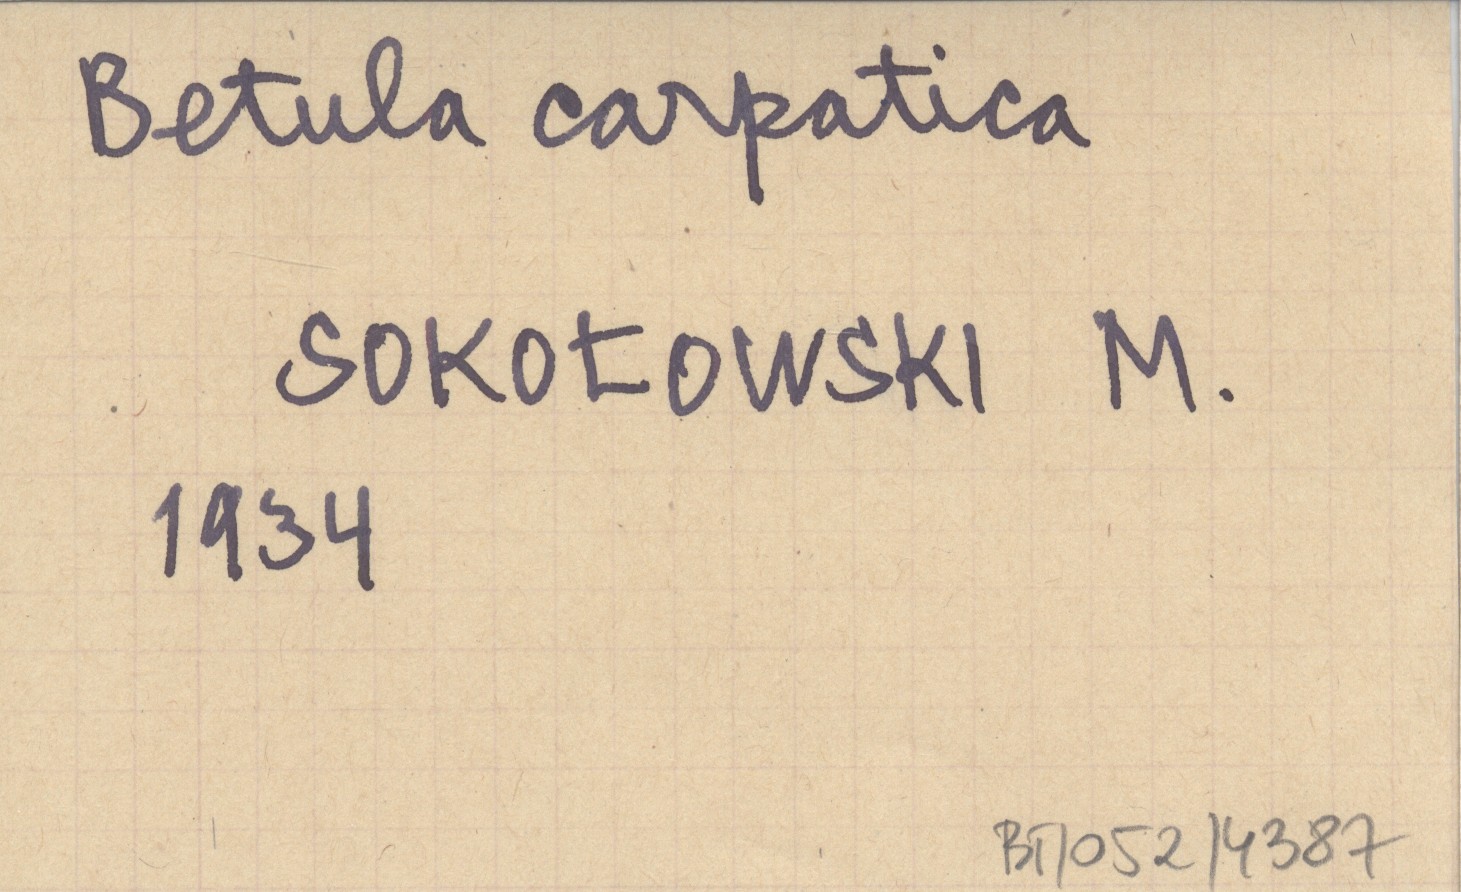 Betula carpatica
SOKOŁOWSKI M.
1934
BT/052/4387